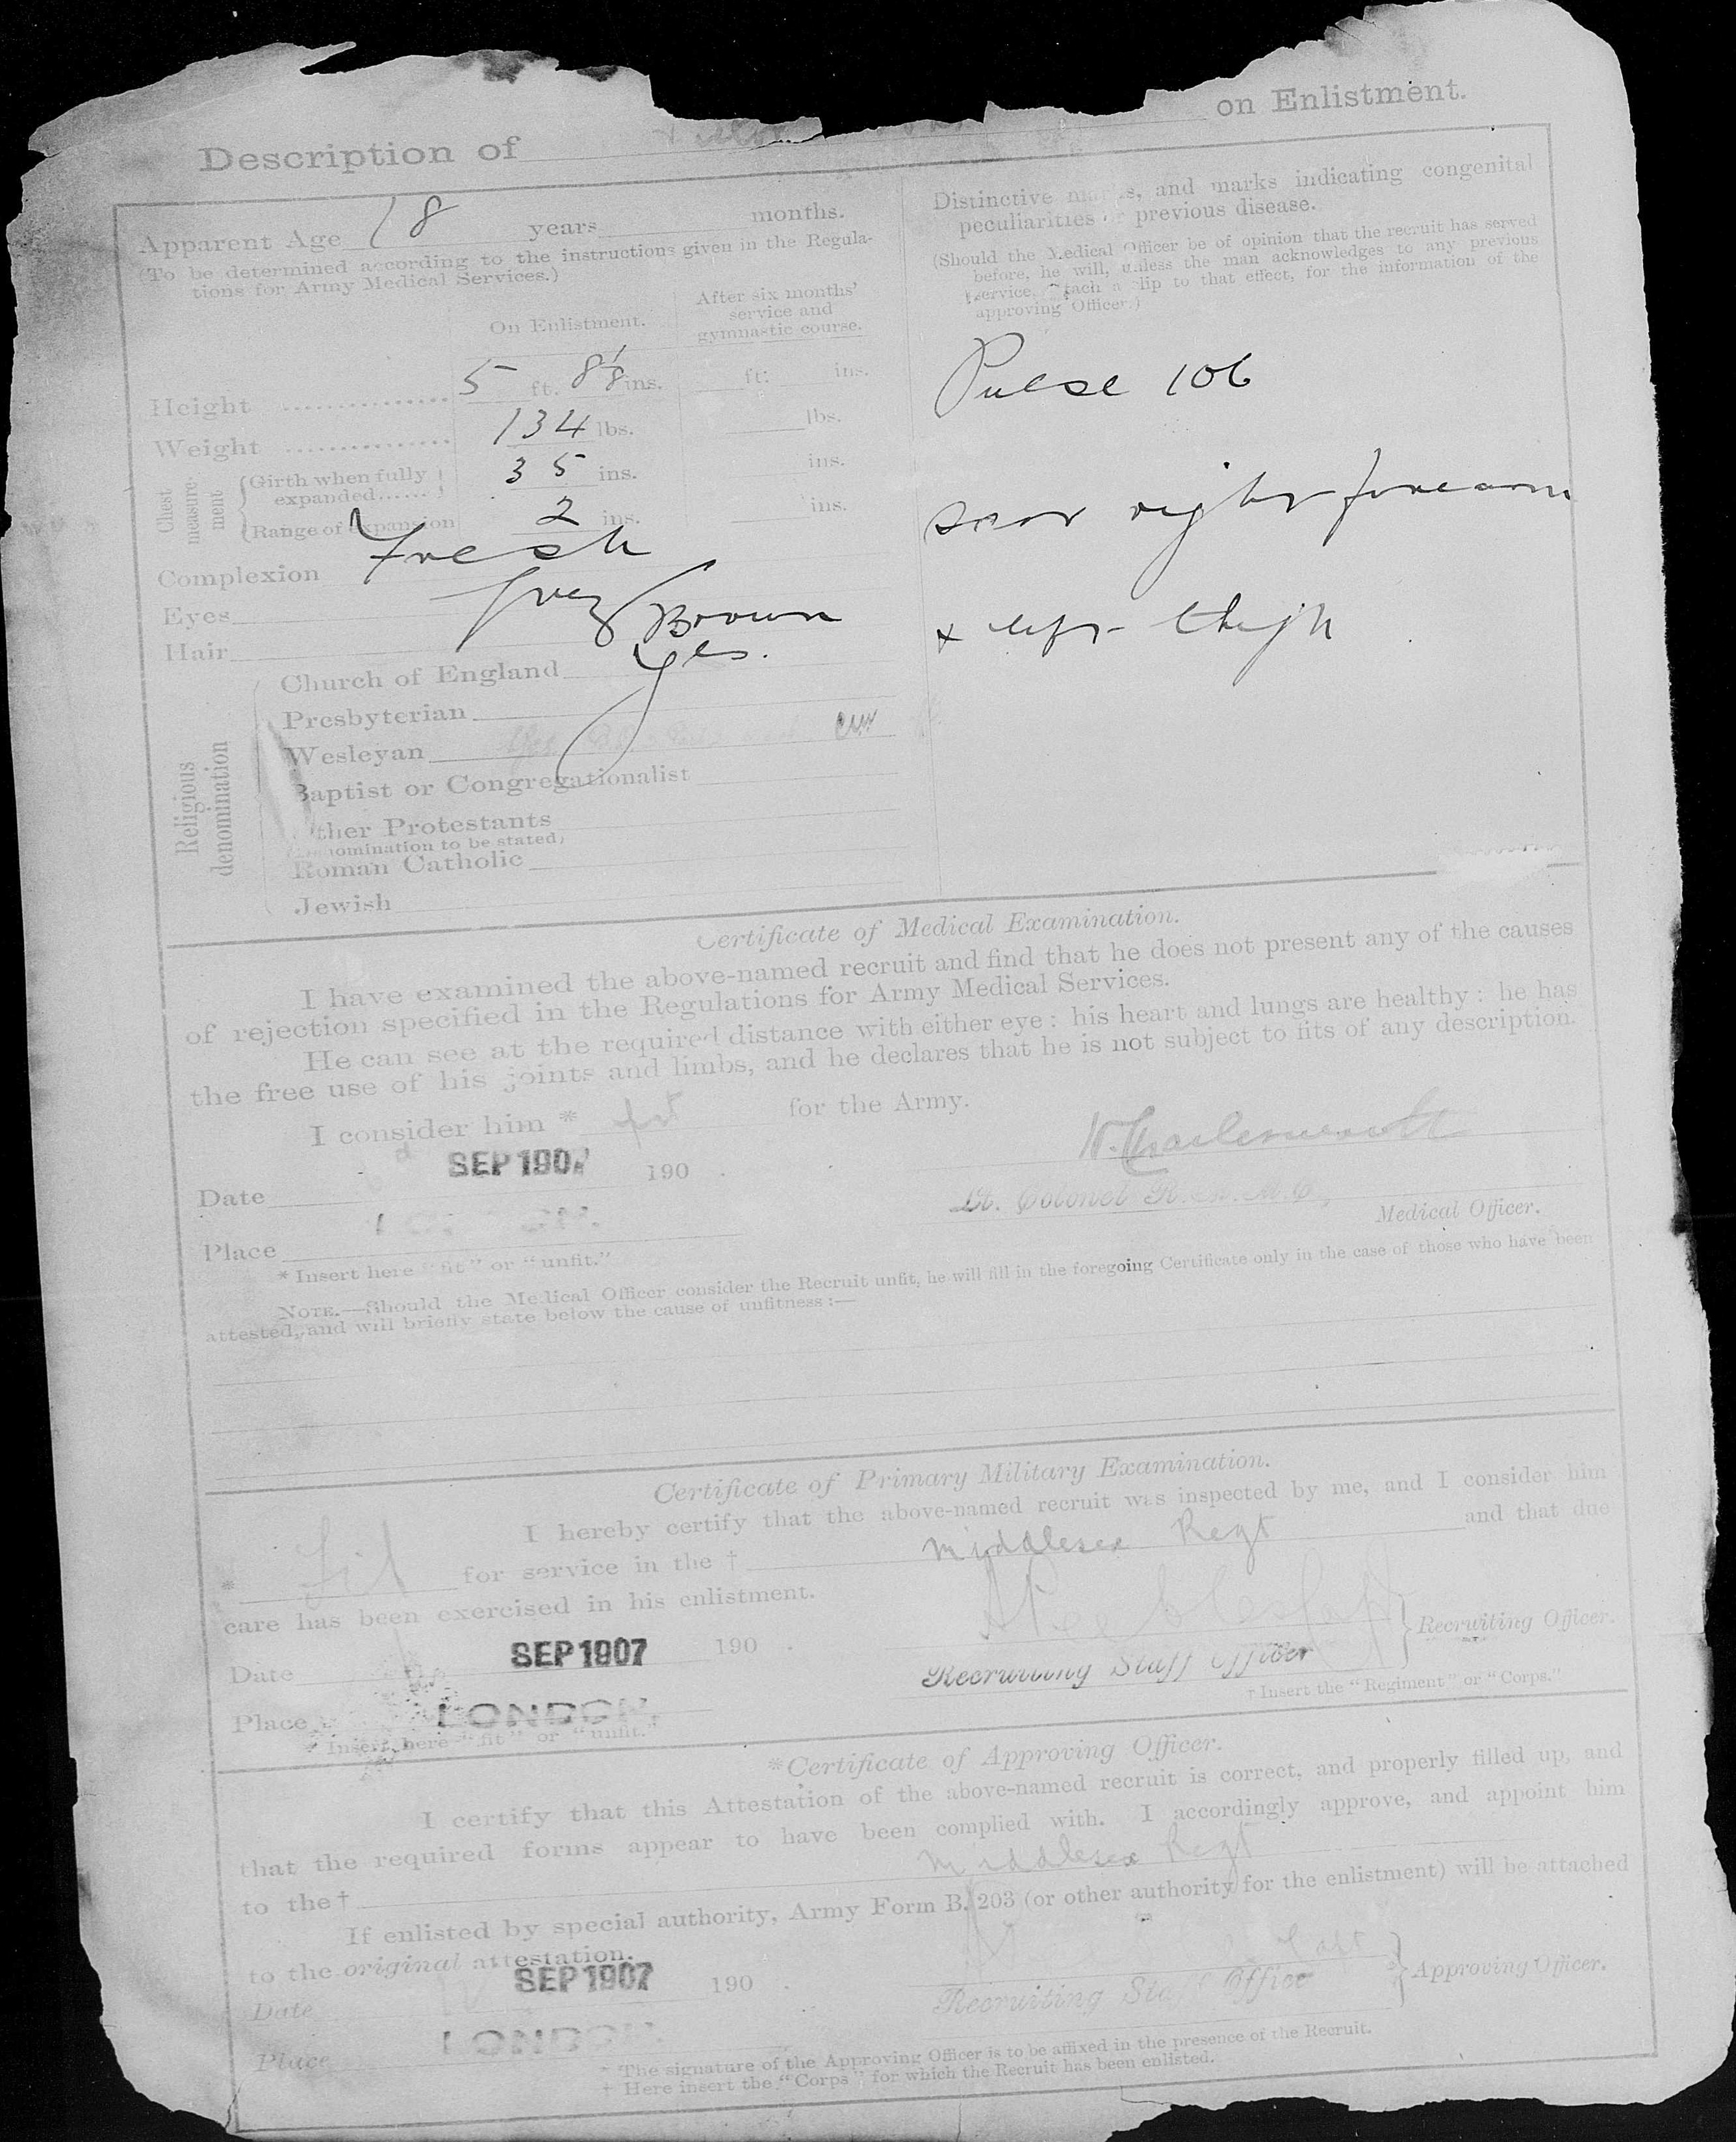 Description of on Enlistment.
Apparent Age 18 years months.
(To be determined according to the instructions given in the Regula-
tions for Army Medical Services.)
On Enlistment.
After six months'
service and
gymnastic course.
Height 5 ft. 8 1/8 ins. ft. ins.
Weight 134 lbs. lbs.
Chest measure-ment
Girth when fully expanded...... 35 ins. ins.
Range of expansion 2 ins. ins.
Complexion Fresh
Eyes Grey
Hair Brown
Religious denomination
Church of England Yes.
Presbyterian
Wesleyan
Baptist or Congregationalist
Other Protestants
(Denomination to be stated)
Roman Catholic
Jewish
Distinctive marks, and marks indicating congenital
peculiarities or previous disease.
(Should the Medical Officer be of opinion that the recruit has served
before, he will, unless the man acknowledges to any previous
service, attach a slip to that effect, for the information of the
approving Officer.)
Pulse 106
scar right forearm
+ left thigh
Certificate of Medical Examination.
I have examined the above-named recruit and find that he does not present any of the causes
of rejection specified in the Regulations for Army Medical Services.
He can see at the required distance with either eye: his heart and lungs are healthy: he has
the free use of his joints and limbs, and he declares that he is not subject to fits of any description.
I consider him * fit for the Army.
Date SEP 1907 190 .
Lt. Colonel R.A.M.C.,
Medical Officer.
Place LONDON.
* Insert here "fit" or "unfit."
NOTE.—Should the Medical Officer consider the Recruit unfit, he will fill in the foregoing Certificate only in the case of those who have been
attested, and will briefly state below the cause of unfitness:—
Certificate of Primary Military Examination.
I hereby certify that the above-named recruit was inspected by me, and I consider him
* Fit for service in the † Middlesex Regt and that due
care has been exercised in his enlistment.
Date SEP 1907 190 .
Recruiting Officer.
Recruiting Staff Officer
Place LONDON.
† Insert the "Regiment" or "Corps."
* Insert here "fit" or "unfit."
*Certificate of Approving Officer.
I certify that this Attestation of the above-named recruit is correct, and properly filled up, and
that the required forms appear to have been complied with. I accordingly approve, and appoint him
to the † Middlesex Regt
If enlisted by special authority, Army Form B. 203 (or other authority for the enlistment) will be attached
to the original attestation.
Date SEP 1907 190 .
Capt
Approving Officer.
Recruiting Staff Officer
Place LONDON
* The signature of the Approving Officer is to be affixed in the presence of the Recruit.
† Here insert the "Corps" for which the Recruit has been enlisted.